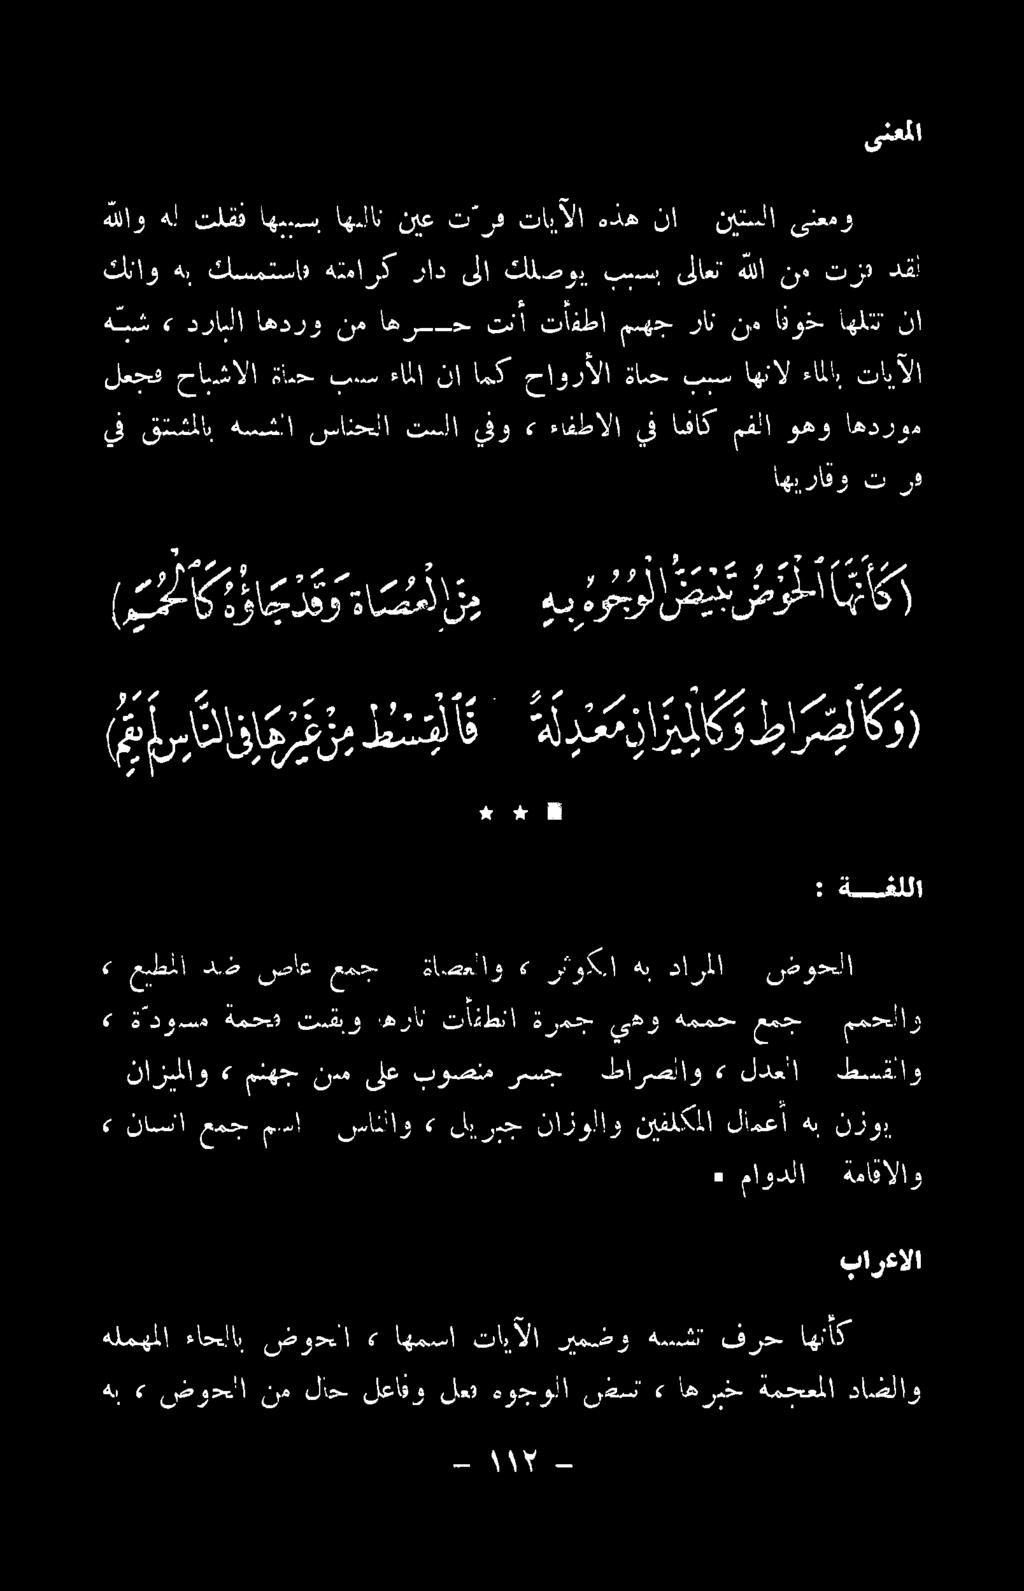 المعنى
ومعنى البيتين ان هذه الآيات قرّت عين تاليها بسببها فقلت له والله
لقد فزت من الله تعالى بسبب يوصلك الى دار كرامته فاستمسك به وانك
ان تتلها خوفا من نار جهنم اطفأت أنت حرها من وردها البارد ، شبّه
الآيات بالماء لانها سبب حياة الأرواح كما ان الماء سبب حياة الاشباح فجعل
موردها وهو الفم كافيا في الاطفاء ، وفي البيت الجناس الشبيه بالمشتق في
قر ت وقاريها
(كَأَنَّهَا الْحَوْضُ تَبْيَضُّ الْوُجُوهُ بِهِ مِنَ الْعُصَاةِ وَقَدْ جَاؤُهُ كَالْحُمَمِ)
(وَكَالصِّرَاطِ وَكَالْمِيزَانِ مَعْدِلَةً فَالْقِسْطُ مِنْ غَيْرِهَا فِي النَّاسِ لَمْ يَقُمِ)
★ ★ ■
اللغــة :
الحوض المراد به الكوثر ، والعصاة جمع عاص ضد المطيع ،
والحمم جمع حممه وهي جمرة انطفأت نارها وبقيت فحمة مسودّة ،
والقسط العدل ، والصراط جسر منصوب على متن جهنم ، والميزان
يوزن به أعمال المكلفين والوزان جبريل ، والناس اسم جمع انسان ،
والاقامة الدوام ▪
الاعراب
كأنها حرف تشبيه وضمير الآيات اسمها ، الحوض بالحاء المهمله
والضاد المعجمة خبرها ، تبيض الوجوه فعل وفاعل حال من الحوض ، به
– ١١٢ –